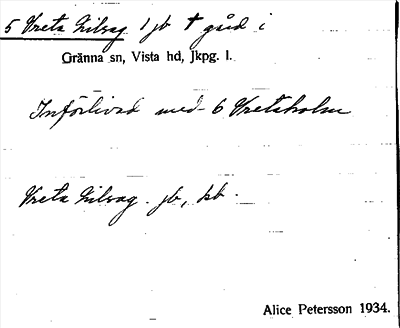 5 Vreta Nilsag 1 jb † gård i
Gränna sn, Vista hd, Jkpg. l.
Införlivad med 6 Vretaholm
Vreta Nilsag. jb, kb.
Alice Petersson 1934.